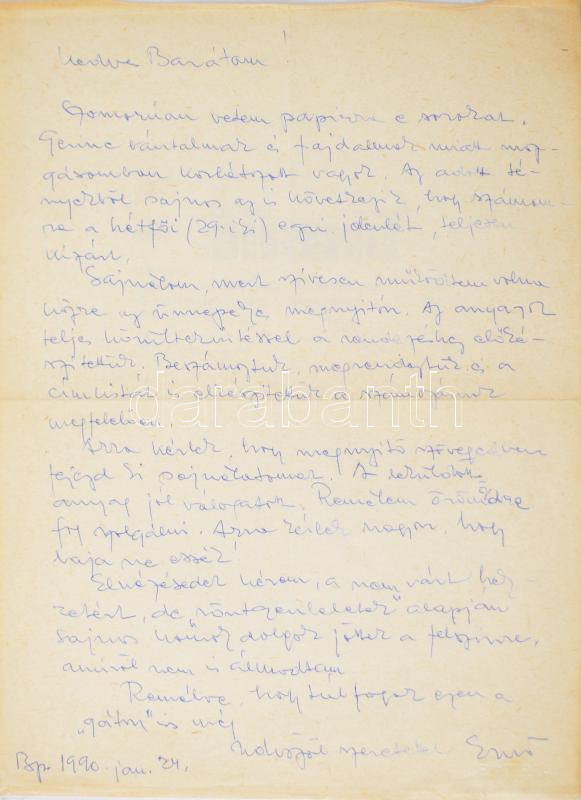 Kedves Barátom!
Szomorúan vetem papírra e sorokat.
Gerinc bántalmak és fájdalmak miatt moz-
gásomban korlátozott vagyok. Az adott té-
nyekből sajnos az is következik, hogy számom-
ra a hétfői (29.-iki) egri jelenlét, teljesen
kizárt.
Sajnálom, mert szívesen működtem volna
közre az ünnepélyes megnyitón. Az anyagok
teljes körültekintéssel a rendezéshez előké-
szítettük. Beszámoztuk, megrendeztük és a
címlisták is elkészítettük a számozásnak
megfelelően.
Arra kérlek, hogy megnyitó szövegedben
fejezd ki sajnálatomat. A leküldött
anyag jól válogatott. Remélem örömödre
fog szolgálni. Arra kérlek nagyon, hogy
baja ne essék!
Elnézésedet kérem, a nem várt hely-
zetért, de "röntgenleletek" alapján
sajnos komoly dolgok jöttek a felszínre,
amiről nem is álmodtam
Remélve, hogy túl fogok ezen a
"gáton" is még
üdvözöl szeretettel Ernő
Bp. 1990. jan. 24.
darabanth